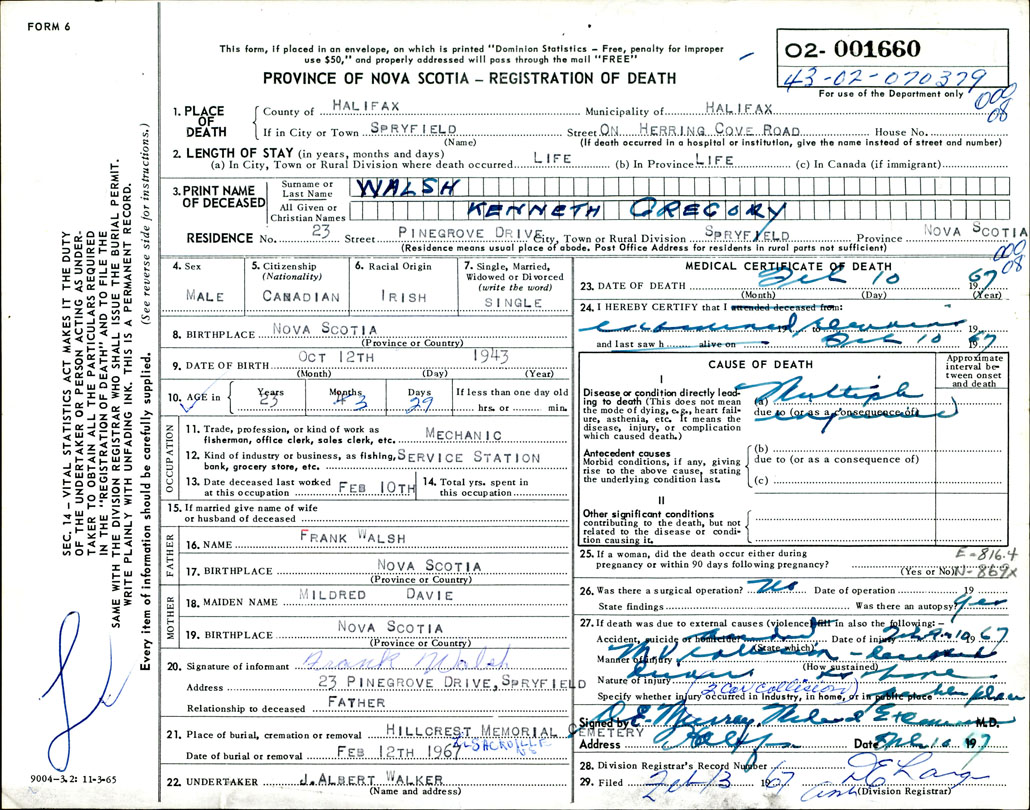 FORM 6
This form, if placed in an envelope, on which is printed "Dominion Statistics – Free, penalty for improper
use $50," and properly addressed will pass through the mail "FREE"
PROVINCE OF NOVA SCOTIA – REGISTRATION OF DEATH
02- 001660
43-02-070379
For use of the Department only
000
08
1. PLACE OF DEATH
County of HALIFAX Municipality of HALIFAX
If in City or Town SPRYFIELD Street ON HERRING COVE ROAD House No.
(Name) (If death occurred in a hospital or institution, give the name instead of street and number)
2. LENGTH OF STAY (in years, months and days)
(a) In City, Town or Rural Division where death occurred LIFE (b) In Province LIFE (c) In Canada (if immigrant)
3. PRINT NAME OF DECEASED
Surname or Last Name WALSH
All Given or Christian Names KENNETH GREGORY
RESIDENCE No. 23 Street PINEGROVE DRIVE City, Town or Rural Division SPRYFIELD Province NOVA SCOTIA
(Residence means usual place of abode. Post Office Address for residents in rural parts not sufficient)
000
08
4. Sex MALE
5. Citizenship (Nationality) CANADIAN
6. Racial Origin IRISH
7. Single, Married, Widowed or Divorced (write the word) SINGLE
8. BIRTHPLACE NOVA SCOTIA
(Province or Country)
9. DATE OF BIRTH OCT 12TH 1943
(Month) (Day) (Year)
10. AGE in Years 23 Months 3 Days 29 If less than one day old hrs. or min.
OCCUPATION
11. Trade, profession, or kind of work as fisherman, office clerk, sales clerk, etc. MECHANIC
12. Kind of industry or business, as fishing, bank, grocery store, etc. SERVICE STATION
13. Date deceased last worked at this occupation FEB 10TH
14. Total yrs. spent in this occupation
15. If married give name of wife or husband of deceased
FATHER
16. NAME FRANK WALSH
17. BIRTHPLACE NOVA SCOTIA
(Province or Country)
MOTHER
18. MAIDEN NAME MILDRED DAVIE
19. BIRTHPLACE NOVA SCOTIA
(Province or Country)
20. Signature of informant Frank Walsh
Address 23 PINEGROVE DRIVE, SPRYFIELD
Relationship to deceased FATHER
21. Place of burial, cremation or removal HILLCREST MEMORIAL CEMETERY
Date of burial or removal FEB 12TH 1967 L. SACKVILLE NS
22. UNDERTAKER J. ALBERT WALKER
(Name and address)
MEDICAL CERTIFICATE OF DEATH
23. DATE OF DEATH Feb 10 1967
(Month) (Day) (Year)
24. I HEREBY CERTIFY that I attended deceased from:
examined remains 19
and last saw h alive on Feb 10 1967
CAUSE OF DEATH
Approximate interval between onset and death
I
Disease or condition directly leading to death (This does not mean the mode of dying, e.g., heart failure, asthenia, etc. It means the disease, injury, or complication which caused death.)
(a) Multiple injuries
due to (or as a consequence of)
Antecedent causes
Morbid conditions, if any, giving rise to the above cause, stating the underlying condition last.
(b)
due to (or as a consequence of)
(c)
II
Other significant conditions
contributing to the death, but not related to the disease or condition causing it.
25. If a woman, did the death occur either during pregnancy or within 90 days following pregnancy?
(Yes or No)
E-816.4
N-869x
26. Was there a surgical operation? No Date of operation 19
State findings Was there an autopsy? Yes
27. If death was due to external causes (violence) fill in also the following:–
Accident, suicide or homicide? Date of injury Feb 9 or 10 1967
(State which)
Manner of injury M.V. collision
(How sustained)
Nature of injury
(2 car collision)
Specify whether injury occurred in industry, in home, or in public place
Signed by D. E. Murray, Medical Examiner M.D.
Address Halifax Date Feb 10 1967
28. Division Registrar's Record Number
29. Filed Feb 13 1967
(Division Registrar)
SEC. 14 – VITAL STATISTICS ACT MAKES IT THE DUTY
OF THE UNDERTAKER OR PERSON ACTING AS UNDER-
TAKER TO OBTAIN ALL THE PARTICULARS REQUIRED
IN THE "REGISTRATION OF DEATH" AND TO FILE THE
SAME WITH THE DIVISION REGISTRAR WHO SHALL ISSUE THE BURIAL PERMIT.
WRITE PLAINLY WITH UNFADING INK. THIS IS A PERMANENT RECORD.
Every item of information should be carefully supplied. (See reverse side for instructions.)
9004-3.2: 11-3-65